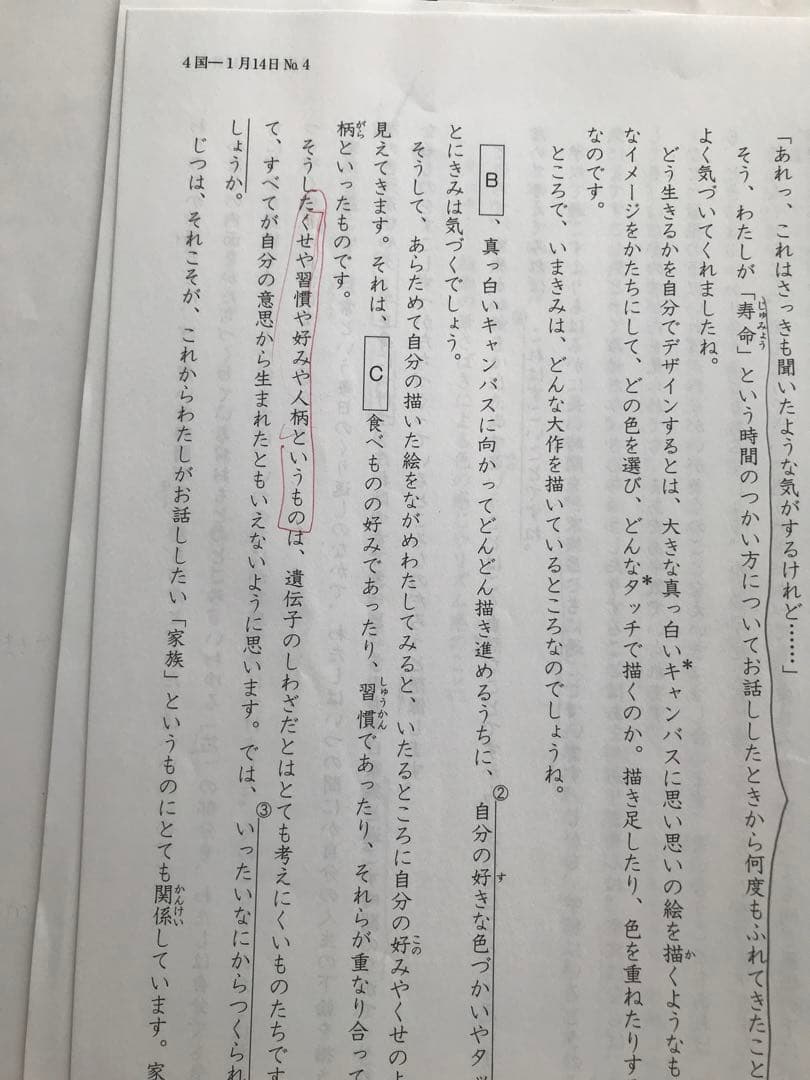 4国―1月14日 No.4
「あれっ、これはさっきも聞いたような気がするけれど……」
そう、わたしが「寿命」という時間のつかい方についてお話ししたときから何度もふれてきたこと
よく気づいてくれましたね。
どう生きるかを自分でデザインするとは、大きな真っ白い*キャンバスに思い思いの絵を描くようなも
なイメージをかたちにして、どの色を選び、どんな*タッチで描くのか。描き足したり、色を重ねたりす
なのです。
ところで、いまきみは、どんな大作を描いているところなのでしょうね。
B、真っ白いキャンバスに向かってどんどん描き進めるうちに、②自分の好きな色づかいやタッ
とにきみは気づくでしょう。
そうして、あらためて自分の描いた絵をながめわたしてみると、いたるところに自分の好みやくせのよ
見えてきます。それは、C食べものの好みであったり、習慣であったり、それらが重なり合って
柄といったものです。
そうしたくせや習慣や好みや人柄というものは、遺伝子のしわざだとはとても考えにくいものたちです
て、すべてが自分の意思から生まれたともいえないように思います。では、③いったいなにからつくられ
しょうか。
じつは、それこそが、これからわたしがお話ししたい「家族」というものにとても関係しています。家